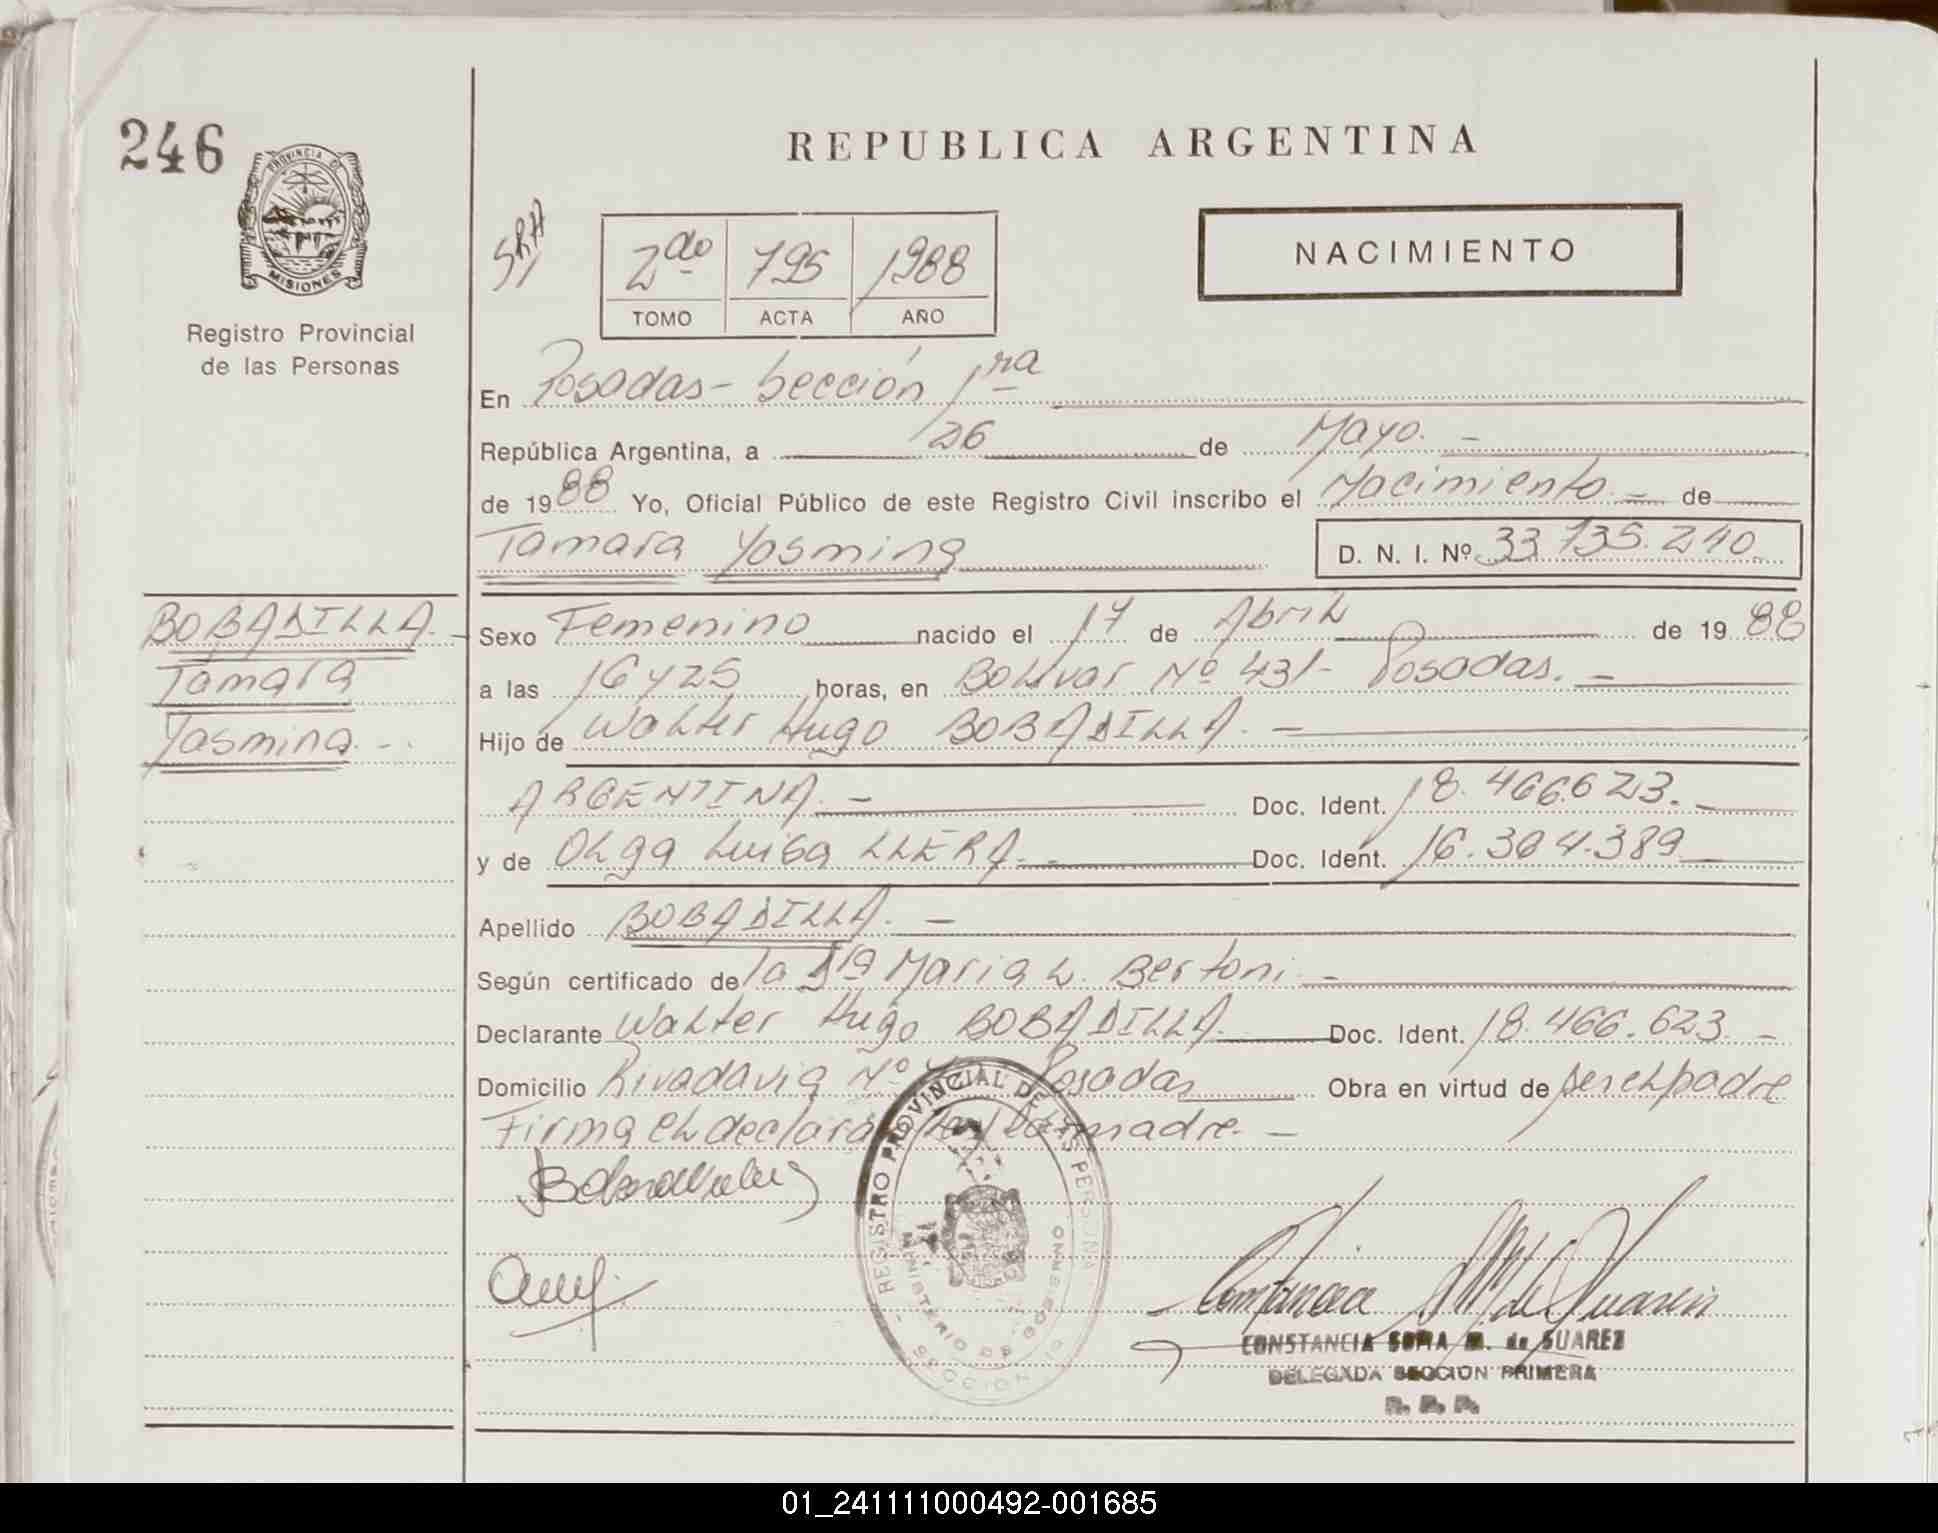 246
PROVINCIA DE
MISIONES
Registro Provincial
de las Personas
REPUBLICA ARGENTINA
NACIMIENTO
2do 795 1988
TOMO ACTA AÑO
En Posadas - Sección 1ra
República Argentina, a 26 de Mayo. -
de 1988 Yo, Oficial Público de este Registro Civil inscribo el Nacimiento - de
Tamara Yasmina D. N. I. Nº 33.735.240
BOBADILLA. -
Tamara
Yasmina. -.
Sexo Femenino nacido el 17 de Abril de 1988
a las 16 y 25 horas, en Bolivar Nº 431 - Posadas. -
Hijo de Walter Hugo BOBADILLA. -
ARGENTINA. - Doc. Ident. 18.466.623. -
y de Olga Luisa LLERA. - Doc. Ident. 16.304.389
Apellido BOBADILLA. -
Según certificado de la Dra Maria L. Bertoni. -
Declarante Walter Hugo BOBADILLA. Doc. Ident. 18.466.623. -
Domicilio Rivadavia Nº Posadas Obra en virtud de ser el padre
Firma el declarante y la madre. -
REGISTRO PROVINCIAL DE LAS PERSONAS
MINISTERIO DE GOBIERNO
SECCION 1a
CONSTANCIA SOFIA M. de SUAREZ
DELEGADA SECCION PRIMERA
R. P. P.
01_241111000492-001685